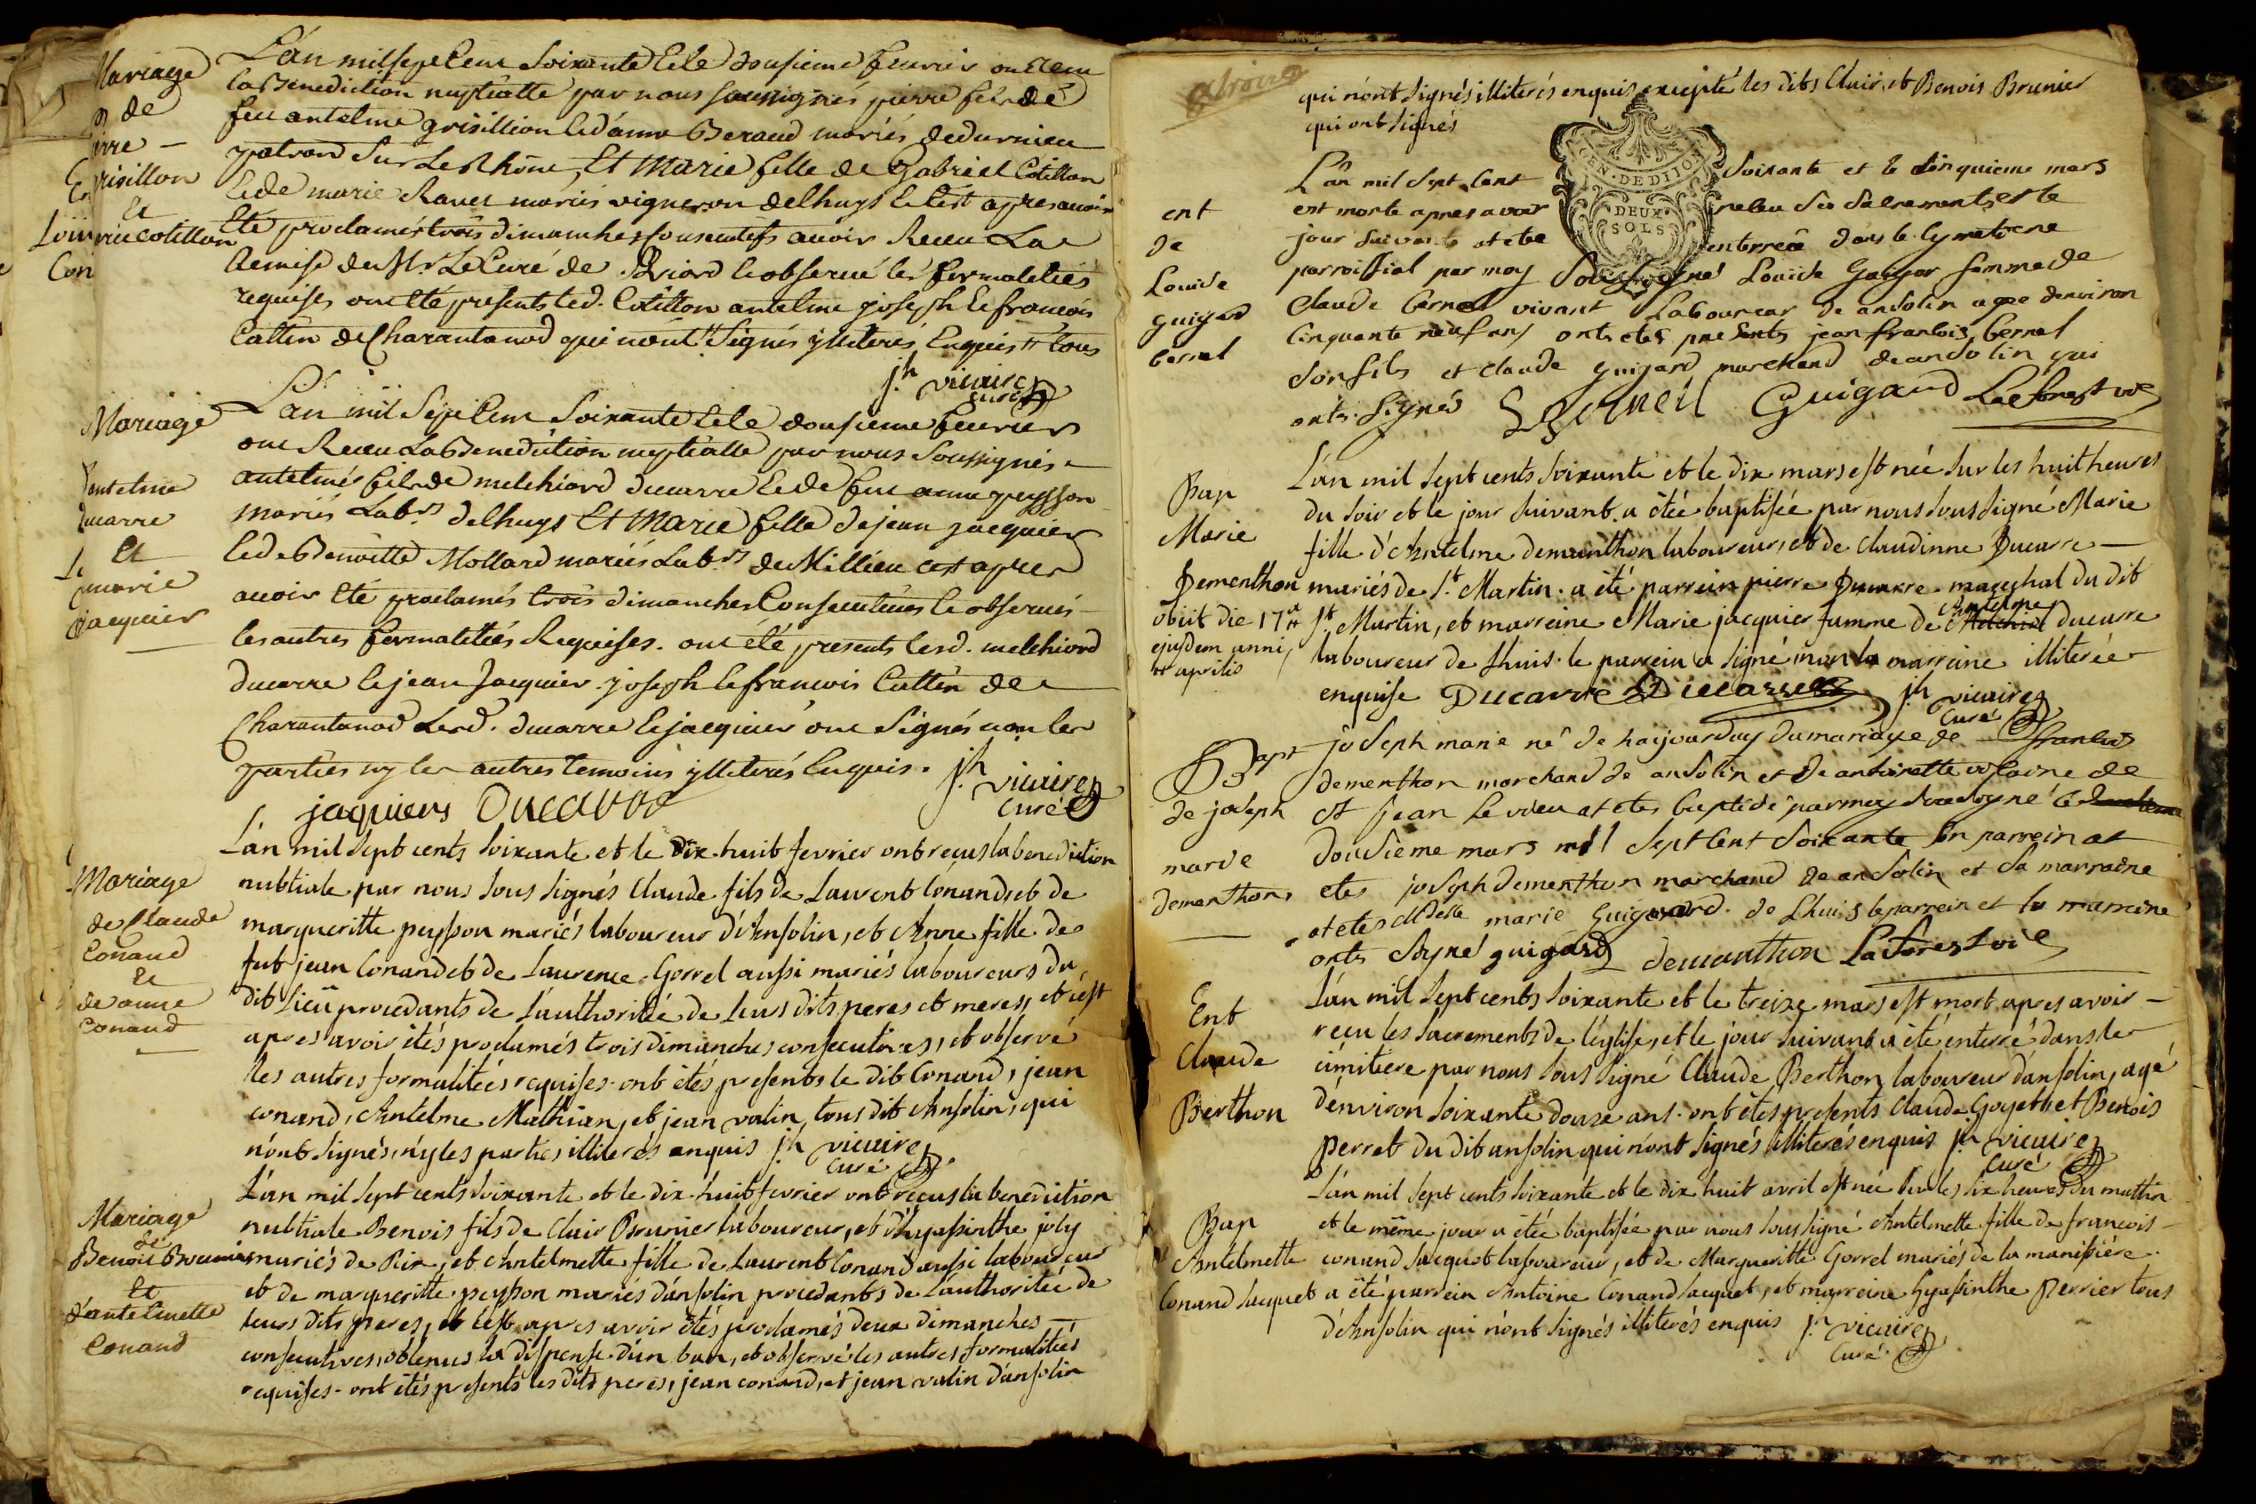 Mariage
de
Pierre
Grisillon
Et
marie cotillon
L'an mil sept cent soixante et le dousieme fevrier ont receu
la Benediction nuptialle par nous soussignés pierre fils de
feu antelme grisillion et d'anne Beraud mariés de
patron sur le Rhône, Et Marie fille de Gabriel Cotillon
et de marie Ravet mariés vigneron delhuys et c'est apres avoir
Eté proclamés trois dimanches consecutifs avoir Receu La
Remise du Mr Le Curé de Briord et observé les formalitées
requises ont été presents led. Cotillon antelme joseph et francois
Cattin de Charantonod qui n'ont signés ylliterés Enquis tous
jh vicaire
curé
Mariage
d'antelme
ducarre
Et
marie
Jacquier
L'an mil Sept Cent Soixante et le dousieme fevrier
ont Receu La Benediction nuptialle par nous Soussignés
antelme fils de melchiord ducarre et de feue anne peysson
mariés Labrs delhuys Et Marie fille de jean jacquier
et de Benoitte Mollard mariés Labrs de Millieu c'est apres
avoir été proclamés trois dimanches Consecutives et observés
les autres formalitées Requises. ont été presents lesd. melchiord
ducarre et jean Jacquier. joseph et francois Cattin de
Charantonod Lesd. ducarre et jacquier ont Signés non les
parties ny les autres temoins ylliterés Enquis.
jh vicaire
curé
jaquiers Ducarre
Mariage
de Claude
Conand
Et
de anne
Conand
L'an mil sept cents soixante et le dix-huit fevrier ont reçus la benediction
nubtiale par nous sous signés Claude fils de Laurent Conand, et de
margueritte peysson mariés laboureur d'Ansolin, et Anne fille de
fut jean Conand et de Laurence Gorrel aussi mariés laboureurs du
dit lieu procedants de l'authoritée de leurs dits peres et meres, et c'est
apres avoir étés proclamés trois dimanches consecutives, et observé
les autres formalitées requises. ont étés presents le dit Conand, jean
conand, Antelme Mathian, et jean valin, tous dit Ansolin, qui
n'ont signés, n'y les parties illiterés enquis jh vicaire
curé
Mariage
de
Benoit Brounier
Et
d'antelmette
Conand
L'an mil sept cents soixante et le dix-huit fevrier ont reçus la benediction
nubtiale Benois fils de Clair Brunier laboureur, et d'hyassinthe joly
mariés de Rix, et Antelmette fille de Laurent Conand aussi laboureur
et de margueritte peysson mariés d'ansolin procedants de l'authoritée de
leurs dits peres, et c'est apres avoir étés proclamés deux dimanches
consecutives, obtenus la dispense d'un ban, et observé les autres formalitées
requises. ont étés presents les dits peres, jean conand, et jean valin d'ansolin
qui n'ont signés illiterés enquis excepté les dits Clair, et Benois Brunier
qui ont signés
GEN. DE DIJON
DEUX
SOLS
ent
de
Louise
guigard
bernel
L'an mil sept cent soixante et le sinquieme mars
est morte apres avoir releu ses sacrements et le
jour suivante at ete enterreé dans le cymetierre
parroissial par moy soussigné Louise Gaygar femme de
Claude bernel vivant Laboureur de ansolin agee denviron
Cinquante neuf ans onts etes presents jean francois bernel
son fils et claude guigard marchand de ansolin qui
onts signés Guigard Laforest vic
Bap
Marie
Dementhon
obiit die 17a
ejusdem anni
aprilis
L'an mil sept cents soixante et le dix mars est née sur les huit heures
du soir et le jour suivant a étée baptisée par nous sous signé Marie
fille d'Antelme demanthon laboureur, et de claudinne Ducarre
mariés de St. Martin. a été parrein pierre Ducarre marechal du dit
St Martin, et marreine Marie jacquier famme de Antelme ducarre
laboureur de Lhuis. le parrein a signé, non la marreine illiterée
enquise Ducarre Ducarre jh vicaire
Curé
Bapt
de joseph
marie
dementhon
joseph marie né de haujourduy du mariage de francois
dementhon marchand de ansolin et de antoinette de
st jean le vieu at etes baptisé par moy soussigné le
dousieme mars mil sept cent soixante son parrein at
etes joseph dementhon marchand de ansolin et sa marraine
at etes Mdelle marie Guigard de Lhuis le parrein et la marreine
onts signé guigard demanthon Laforest vic
Ent
Claude
Berthon
L'an mil sept cents soixante et le treize mars est mort apres avoir
reçu les sacrements de l'église, et le jour suivant a été enterré dans le
cimitiere par nous sous signé Claude Berthon laboureur d'ansolin, agé
d'environ soixante douze ans. ont étés presents Claude Goyet, et Benois
Perret du dit ansolin qui n'ont signés illiterés enquis jh vicaire
Curé
Bap
Antelmette
Conand Jacquet
L'an mil sept cents soixante et le dix huit avril est née sur les six heures du mattin
et le même jour a étée baptisée par nous sous signé Antelmette fille de francois
conand Jacquet laboureur, et de Margueritte Gorrel mariés de la manissiére.
a été parrein Antoine Conand Jacquet, et marreine hyassinthe Perrier tous
d'Ansolin qui n'ont signés illiterés enquis jh vicaire
Curé